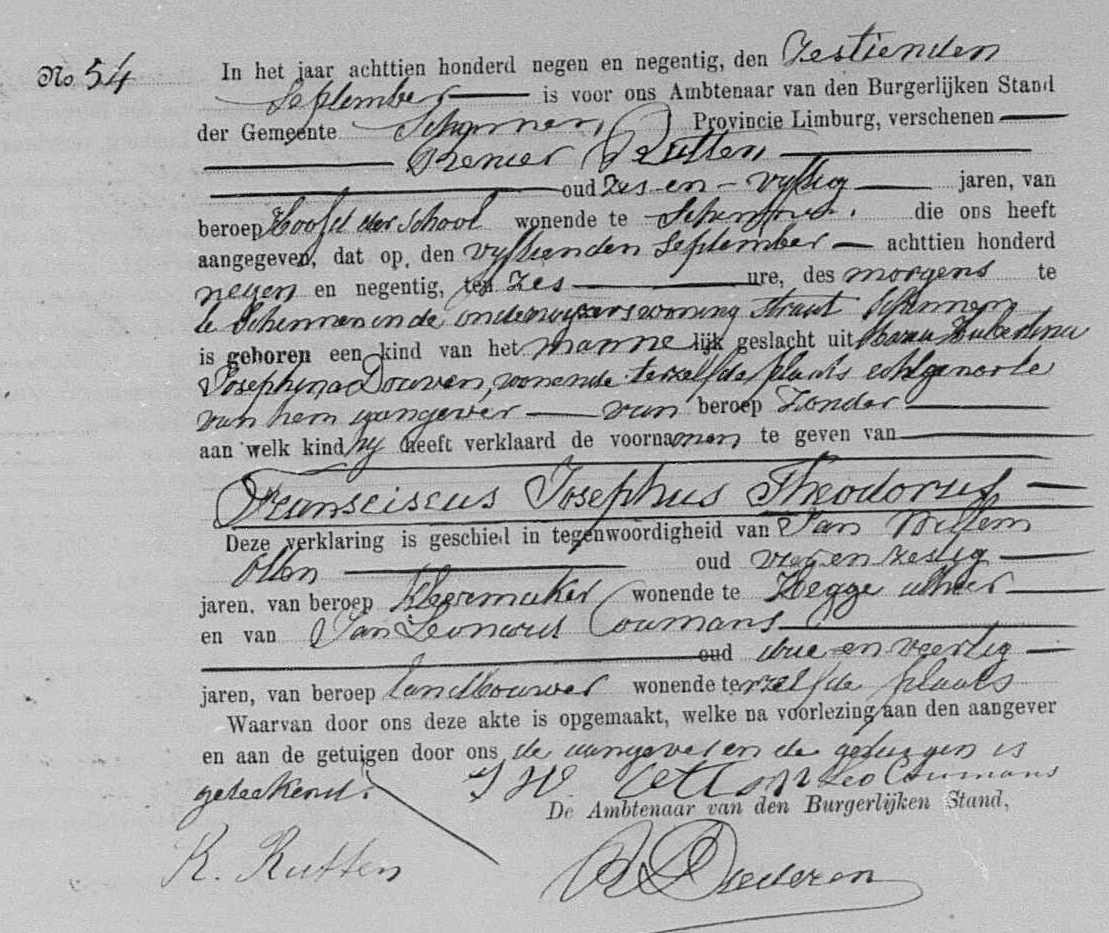 No. 54
In het jaar achttien honderd negen en negentig, den Zestienden
September is voor ons Ambtenaar van den Burgerlijken Stand
der Gemeente Schinnen, Provincie Limburg, verschenen
Renier Rutten
oud Zes-en-vijftig jaren, van
beroep Hoofd der School wonende te Schinnen. die ons heeft
aangegeven, dat op den vijftienden September achttien honderd
negen en negentig, ten Zes ure, des morgens te
te Schinnen in de onderwijzerswoning straat Schinnen
is geboren een kind van het mannelijk geslacht uit Maria Hubertina
Josephina Douven, wonende terzelfde plaats echtgenoote
van hem aangever van beroep Zonder
aan welk kind hij heeft verklaard de voornamen te geven van
Fransciscus Josephus Theodorus
Deze verklaring is geschied in tegenwoordigheid van Jan Willem
Otten oud vier en zestig
jaren, van beroep kleermaker wonende te Hegge alhier
en van Jan Leonard Coumans
oud drie en veertig
jaren, van beroep landbouwer wonende terzelfde plaats
Waarvan door ons deze akte is opgemaakt, welke na voorlezing aan den aangever
en aan de getuigen door ons de aangever en de getuigen is
geteekend.
J W Otten Leo Coumans
De Ambtenaar van den Burgerlijken Stand,
R. Rutten